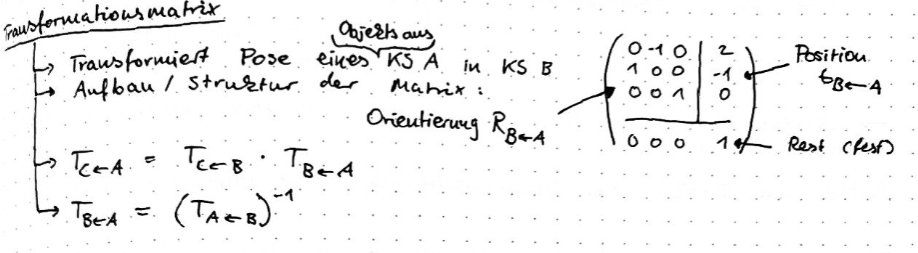 Transformationsmatrix
Objekts aus
→ Transformiert Pose eines KS A in KS B
→ Aufbau / Struktur der Matrix:
Orientierung R_B←A
0 -1 0 | 2
1 0 0 | -1
0 0 1 | 0
0 0 0 1
Position
t_B←A
Rest (fest)
→ T_C←A = T_C←B · T_B←A
→ T_B←A = (T_A←B)^-1